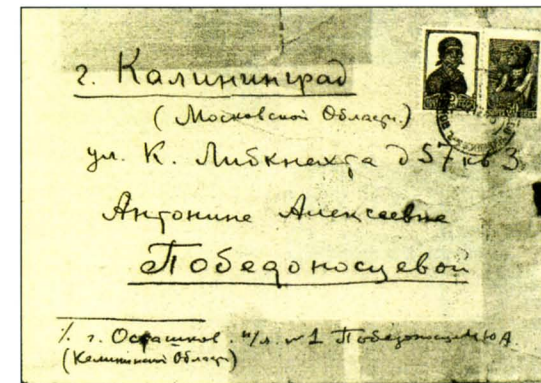 г. Калининград
(Московской Област.)
ул. К. Либкнехта д 57 кв 3
Антонине Алексеевне
Победоносцевой
г. Осташков. п/я. № 1 Победоносцев Ю А.
(Калининской Области)